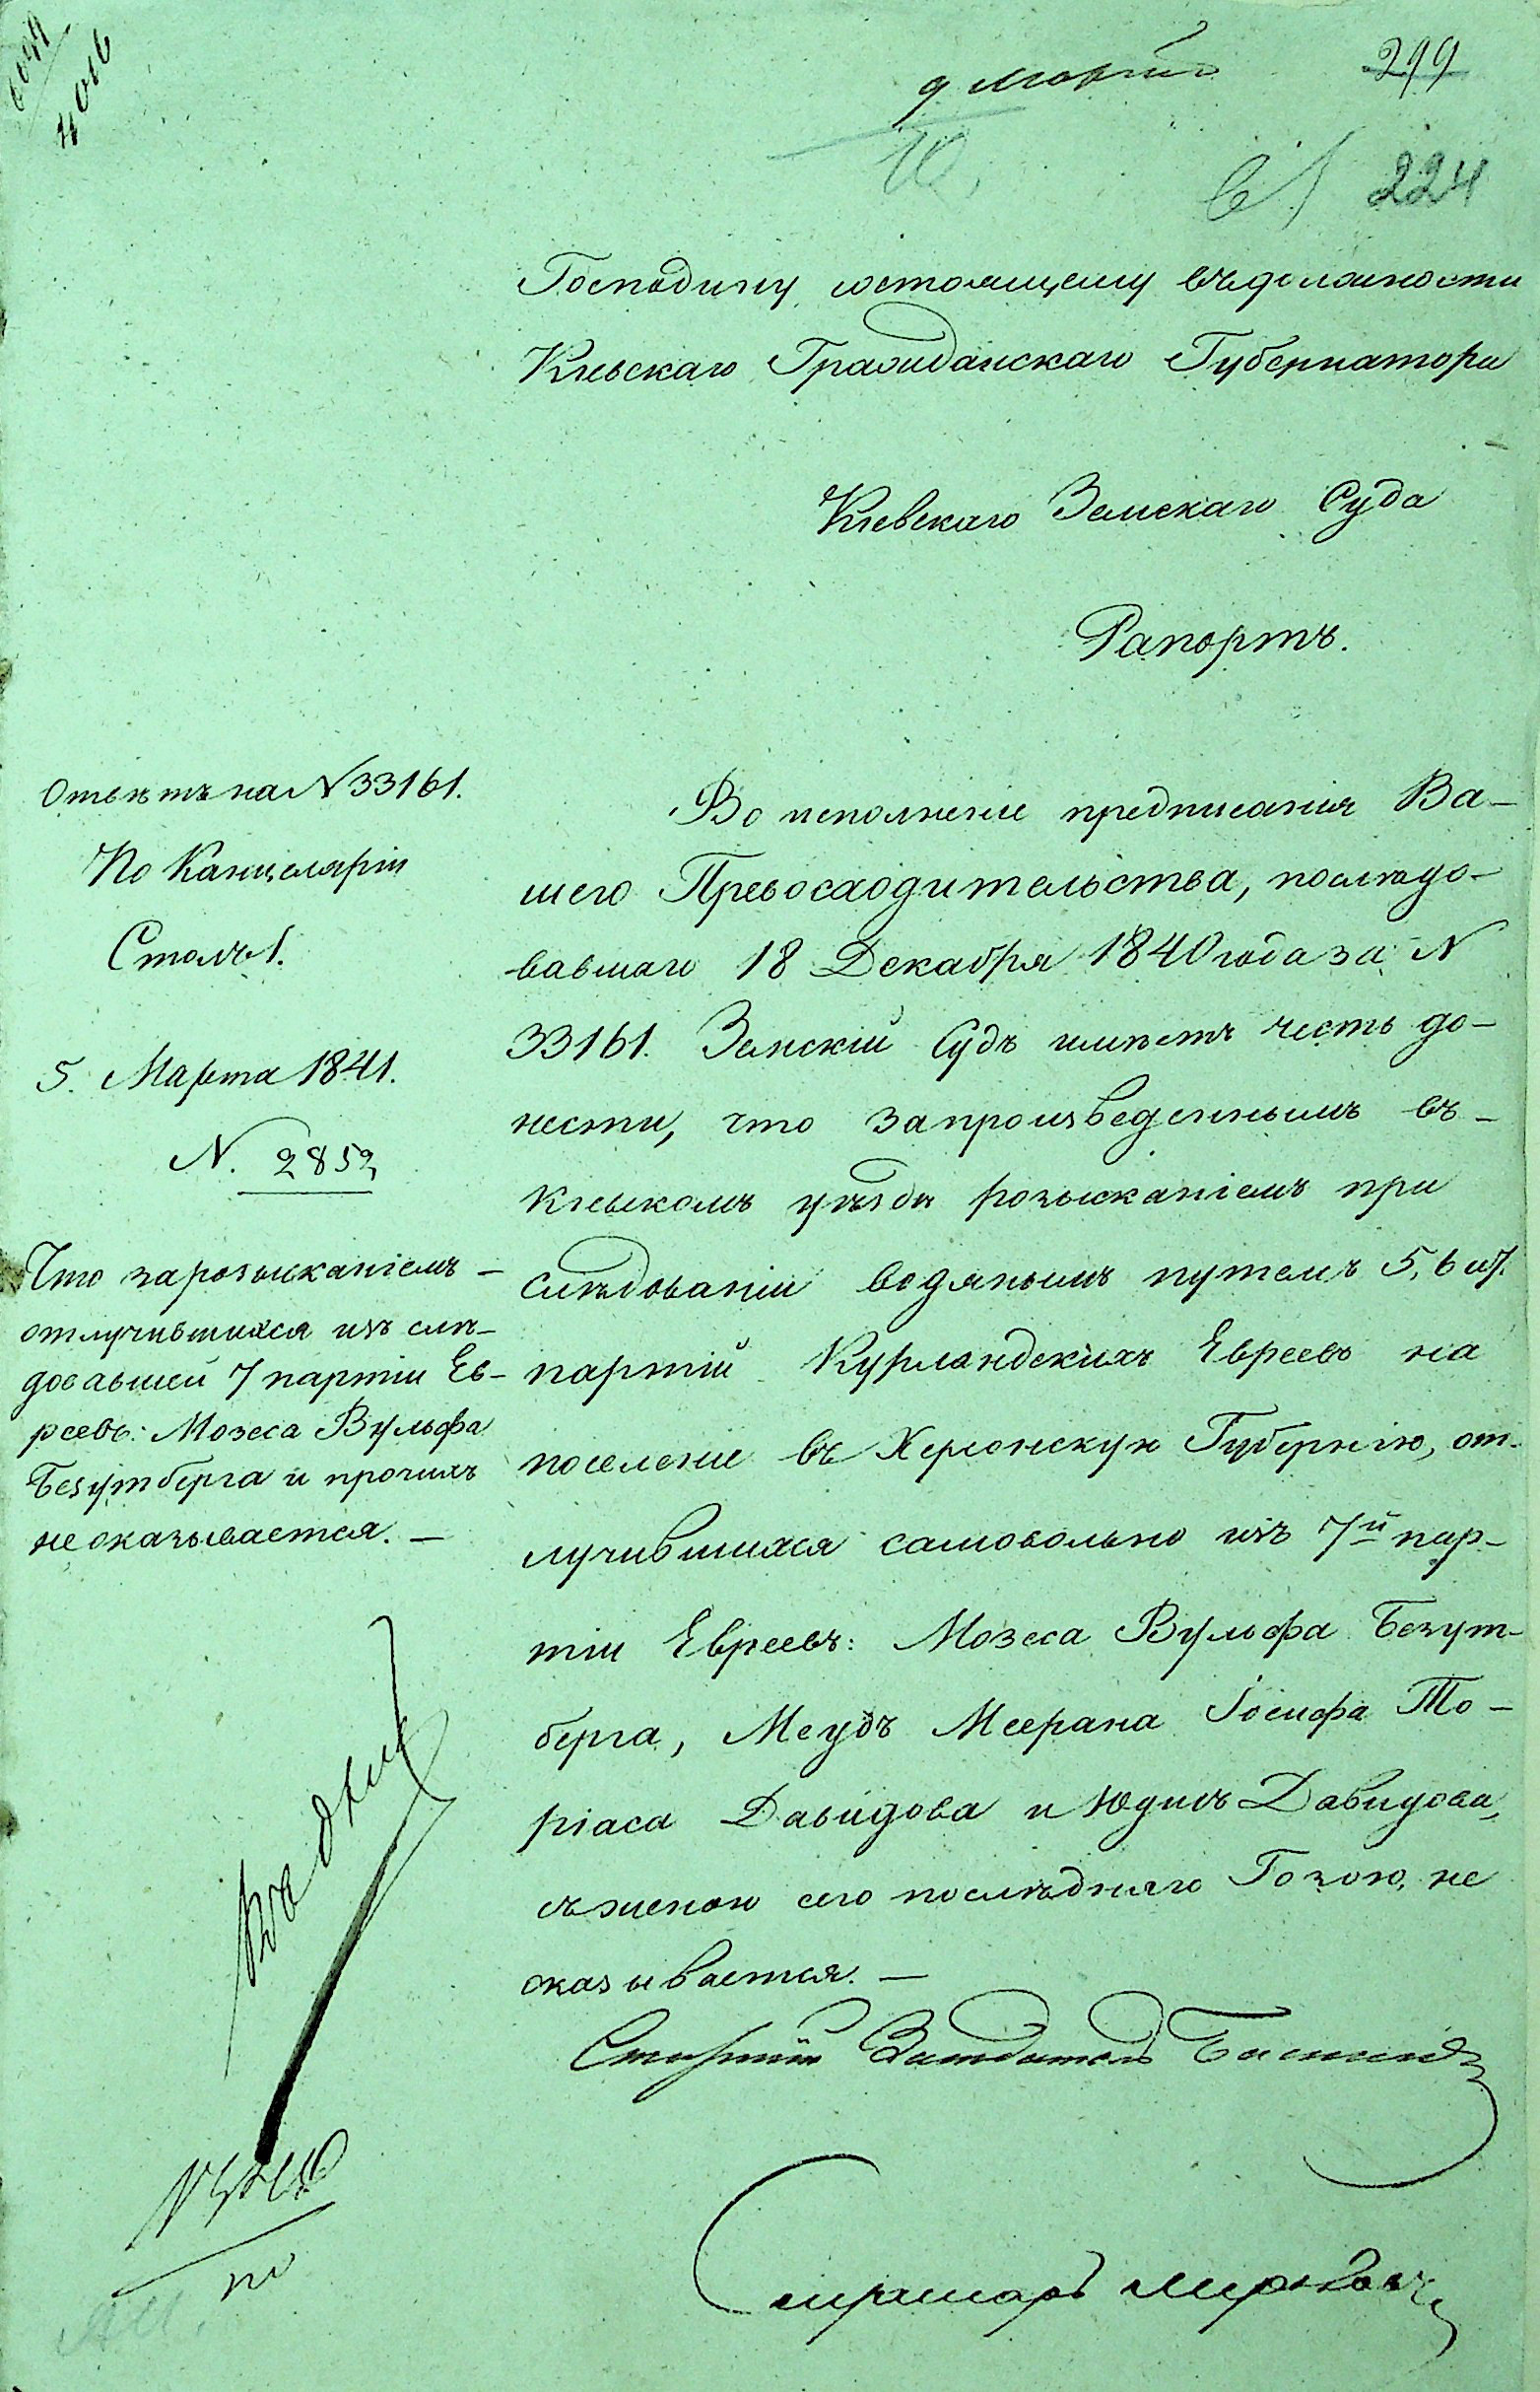 9 Марта
299
224
Господину состоящему въ должности
Кіевскаго Гражданскаго Губернатора
Кіевскаго Земскаго Суда
Рапортъ.
Отвѣтъ на N 33161.
По Канцеляріи
Столъ 1.
5. Марта 1841.
N. 2852
Что за розысканіемъ –
отлучившихся изъ слѣ–
довавшей 7 партіи Ев–
реевъ: Мозеса Вульфа
Безутберга и прочихъ
не оказывается. —
Во исполненіе предписанія Ва–
шего Превосходительства, послѣдо–
вавшаго 18 Декабря 1840 года за N
33161. Земскій Судъ имѣетъ честь до–
нести, что за произведеннымъ въ –
Кіевскомъ уѣздѣ розысканіемъ при
слѣдованіи водянымъ путемъ 5, 6 и 7.
партій Курляндскихъ Евреевъ на
поселеніе въ Херсонскую Губернію, от–
лучившихся самовольно изъ 7й пар–
тіи Евреевъ: Мозеса Вульфа Безут–
берга, Меудъ Меерана Іосифа То–
ріаса Давидова и Юдиъ Давидова,
съ женою сего послѣдняго Гозою, не
оказывается. —
Старшій Засѣдатель